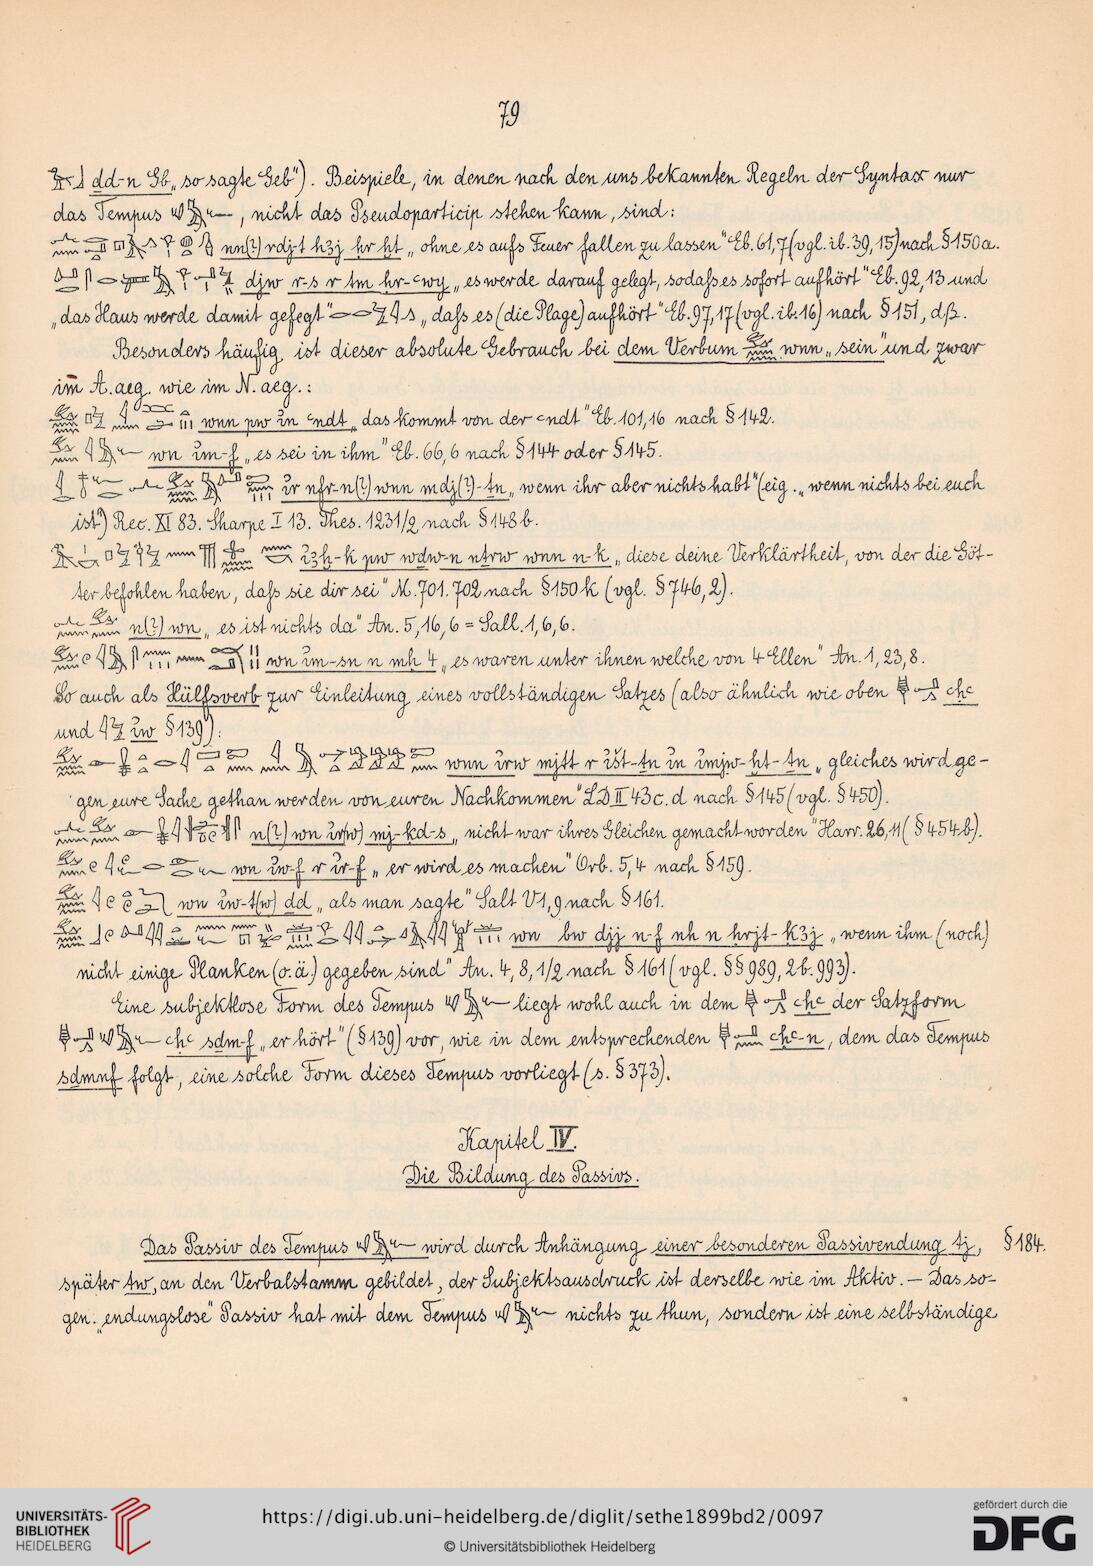 79
dd-n Gb „so sagte Geb“). Beispiele, in denen nach den uns bekannten Regeln der Syntax nur
das Tempus , nicht das Pseudoparticip stehen kann, sind:
nn(?) rdj-t h3j ḥr ḫt „ohne es aufs Feuer fallen zu lassen“ Eb. 61,7 (vgl. ib. 39,15) nach § 150a.
djw r-s r tm ḥr-ꜥwy „es werde darauf gelegt, sodaß es sofort aufhört“ Eb. 92,13 und
„das Haus werde damit gefegt“ „daß es (die Plage) aufhört“ Eb. 97,17 (vgl. ib. 16) nach § 151, d β.
Besonders häufig ist dieser absolute Gebrauch bei dem Verbum wnn „sein“ und zwar
im A. aeg. wie im N. aeg.:
wnn pw in ꜥndt „das kommt von der ꜥndt“ Eb. 101,16 nach § 142.
wn im-f „es sei in ihm“ Eb. 66,6 nach § 144 oder § 145.
ir nfr-n(?) wnn mdj(?)-tn „wenn ihr aber nichts habt“ (eig. „wenn nichts bei euch
ist“) Rec. XI 83. Sharpe I 13. Thes. 1231/2 nach § 148b.
i3ḫ-k pw wdw-n nṯrw wnn n-k „diese deine Verklärtheit, von der die Göt-
ter befohlen haben, daß sie dir sei“ M. 701. 702 nach § 150k (vgl. § 746,2).
n(?) wn „es ist nichts da“ An. 5,16,6 = Sall. 1,6,6.
wn im-sn n mḥ 4 „es waren unter ihnen welche von 4 Ellen“ An. 1,23,8.
So auch als Hülfsverb zur Einleitung eines vollständigen Satzes (also ähnlich wie oben ꜥḥꜥ
und iw § 139):
wnn irw mjtt r išt-tn in imjw-ḫt-tn „gleiches wird ge-
gen eure Sache gethan werden von euren Nachkommen“ LD II 43c. d nach § 145 (vgl. § 450).
n(?) wn ir(w) mj-ḳd-s „nicht war ihres Gleichen gemacht worden“ Harr. 26,11 (§ 454b).
wn iw-f r ir-f „er wird es machen“ Orb. 5,4 nach § 159.
wn iw-t(w) dd „als man sagte“ Salt V 1,9 nach § 161.
wn bw djj n-f nh n ḫrjt-k3j „wenn ihm (noch)
nicht einige Planken (o. ä.) gegeben sind“ An. 4,8,1/2 nach § 161 (vgl. §§ 989,2b. 993).
Eine subjektlose Form des Tempus liegt wohl auch in dem ꜥḥꜥ der Satzform
ꜥḥꜥ sdm-f „er hört“ (§ 139) vor, wie in dem entsprechenden ꜥḥꜥ-n, dem das Tempus
sdmnf folgt, eine solche Form dieses Tempus vorliegt (s. § 373).
Kapitel IV.
Die Bildung des Passivs.
Das Passiv des Tempus wird durch Anhängung einer besonderen Passivendung tj, § 184.
später tw, an den Verbalstamm gebildet, der Subjektsausdruck ist derselbe wie im Aktiv. — Das so-
gen. „endungslose“ Passiv hat mit dem Tempus nichts zu thun, sondern ist eine selbständige
UNIVERSITÄTS-
BIBLIOTHEK
HEIDELBERG
https://digi.ub.uni-heidelberg.de/diglit/sethe1899bd2/0097
© Universitätsbibliothek Heidelberg
gefördert durch die
DFG